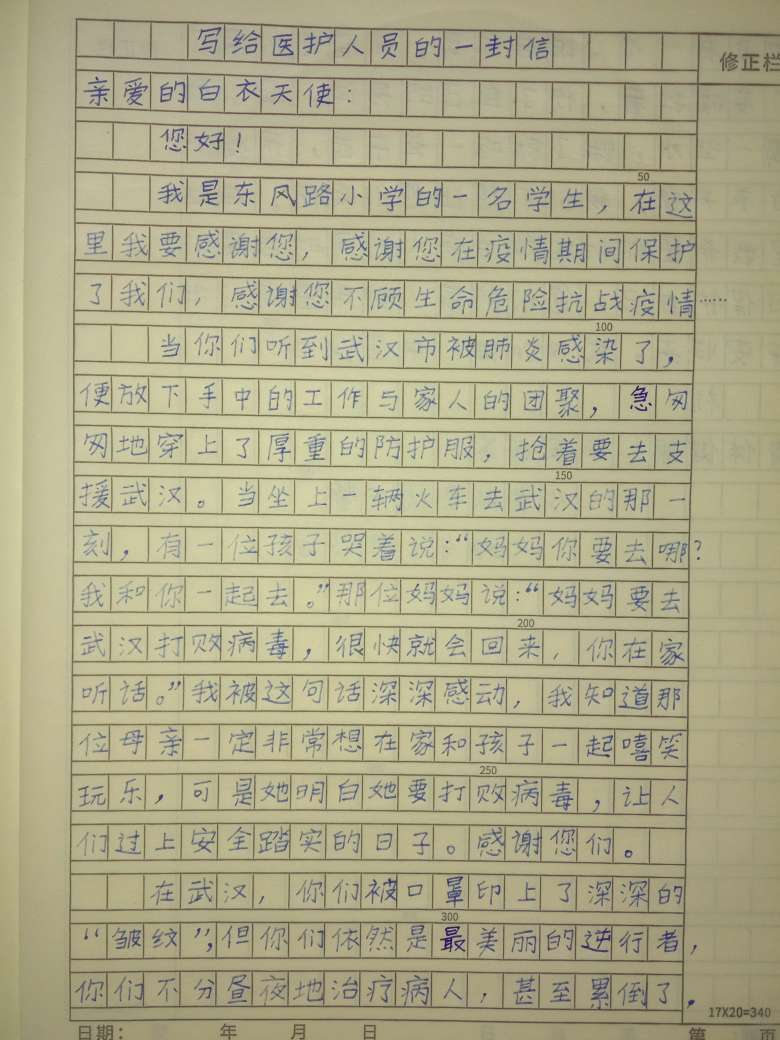 写给医护人员的一封信
修正栏
亲爱的白衣天使:
您好!
50
我是东风路小学的一名学生,在这
里我要感谢您,感谢您在疫情期间保护
了我们,感谢您不顾生命危险抗战疫情……
100
当你们听到武汉市被肺炎感染了,
便放下手中的工作与家人的团聚,急匆
匆地穿上了厚重的防护服,抢着要去支
150
援武汉。当坐上一辆火车去武汉的那一
刻,有一位孩子哭着说:“妈妈你要去哪?
我和你一起去。”那位妈妈说:“妈妈要去
200
武汉打败病毒,很快就会回来,你在家
听话。”我被这句话深深感动,我知道那
位母亲一定非常想在家和孩子一起嘻笑
250
玩乐,可是她明白她要打败病毒,让人
们过上安全踏实的日子。感谢您们。
在武汉,你们被口罩印上了深深的
300
“皱纹”,但你们依然是最美丽的逆行者,
你们不分昼夜地治疗病人,甚至累倒了.
17X20=340
日期: 年 月 日 第 页